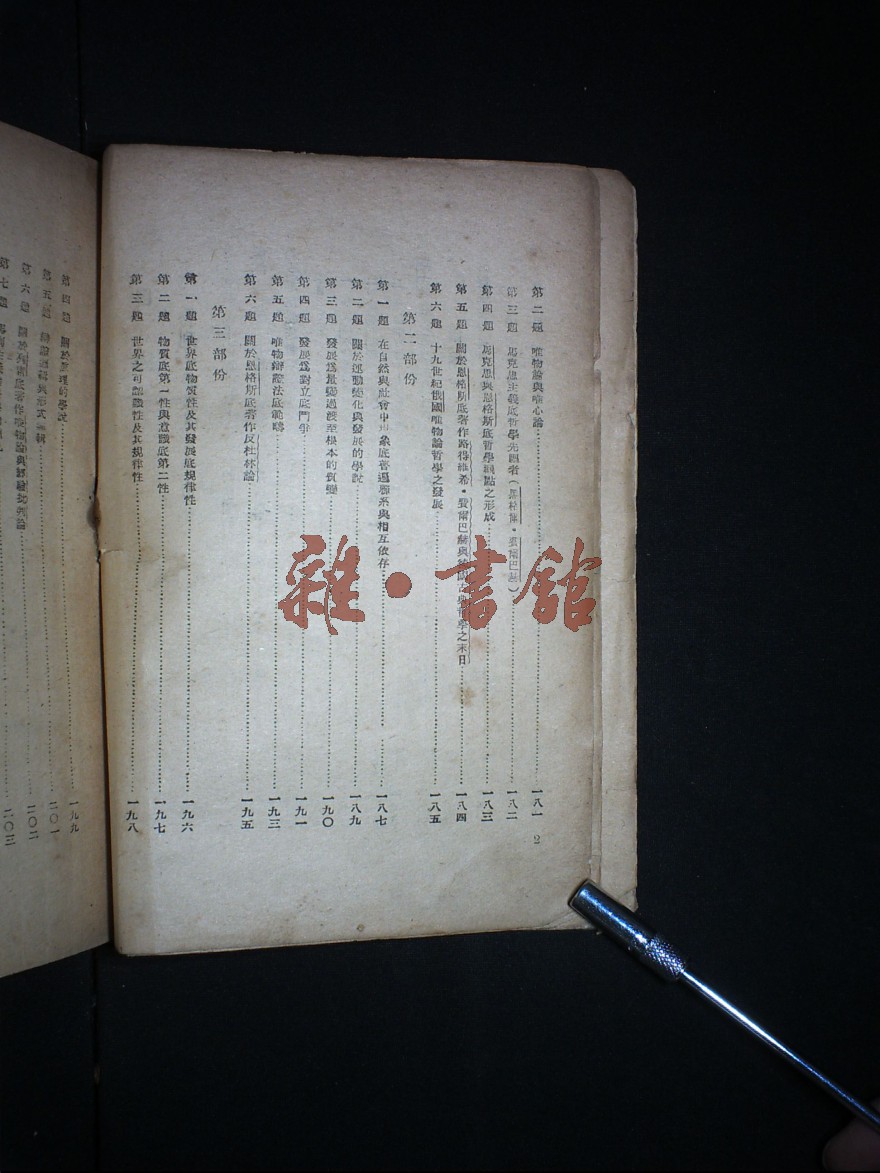 第二題 唯物論與唯心論……一八一
第三題 馬克思主義底哲學先驅者(黑格爾·費爾巴赫)……一八二
第四題 馬克思與恩格斯底哲學觀點之形成……一八三
第五題 關於恩格斯底著作路得維希·費爾巴赫與德國古典哲學之末日……一八四
第六題 十九世紀俄國唯物論哲學之發展……一八五
第二部份
第一題 在自然與社會中現象底普遍聯系與相互依存……一八七
第二題 關於運動變化與發展的學說……一八九
第三題 發展爲量變過渡至根本的質變……一九〇
第四題 發展爲對立底鬥爭……一九一
第五題 唯物辯證法底範疇……一九三
第六題 關於恩格斯底著作反杜林論……一九五
第三部份
第一題 世界底物質性及其發展底規律性……一九六
第二題 物質底第一性與意識底第二性……一九七
第三題 世界之可認識性及其規律性……一九八
2
第四題 關於真理的學說……一九九
第五題 辯證邏輯與形式邏輯……二〇一
第六題 關於列寧底著作唯物論與經驗批判論……二〇二
第七題……二〇三
雜·書館